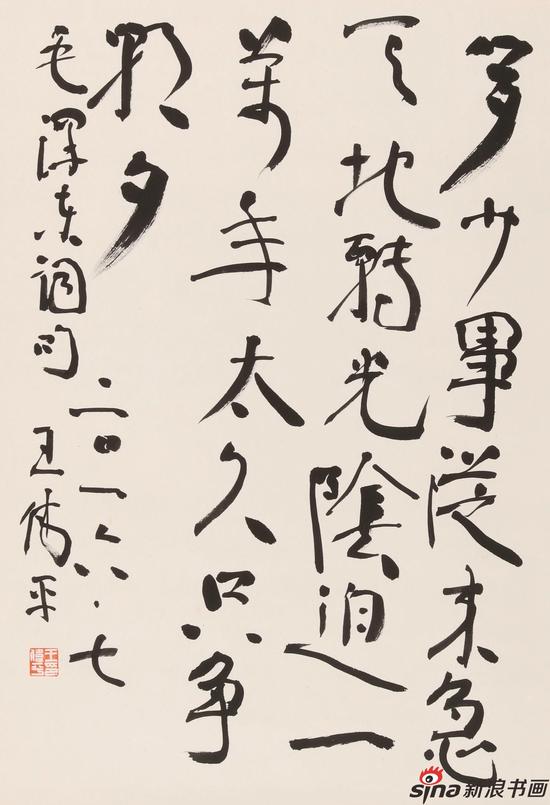 多少事從来急
天地轉光陰迫一
萬年太久只争
朝夕
毛澤东词句
二〇一六·七
王偉平
sina新浪书画